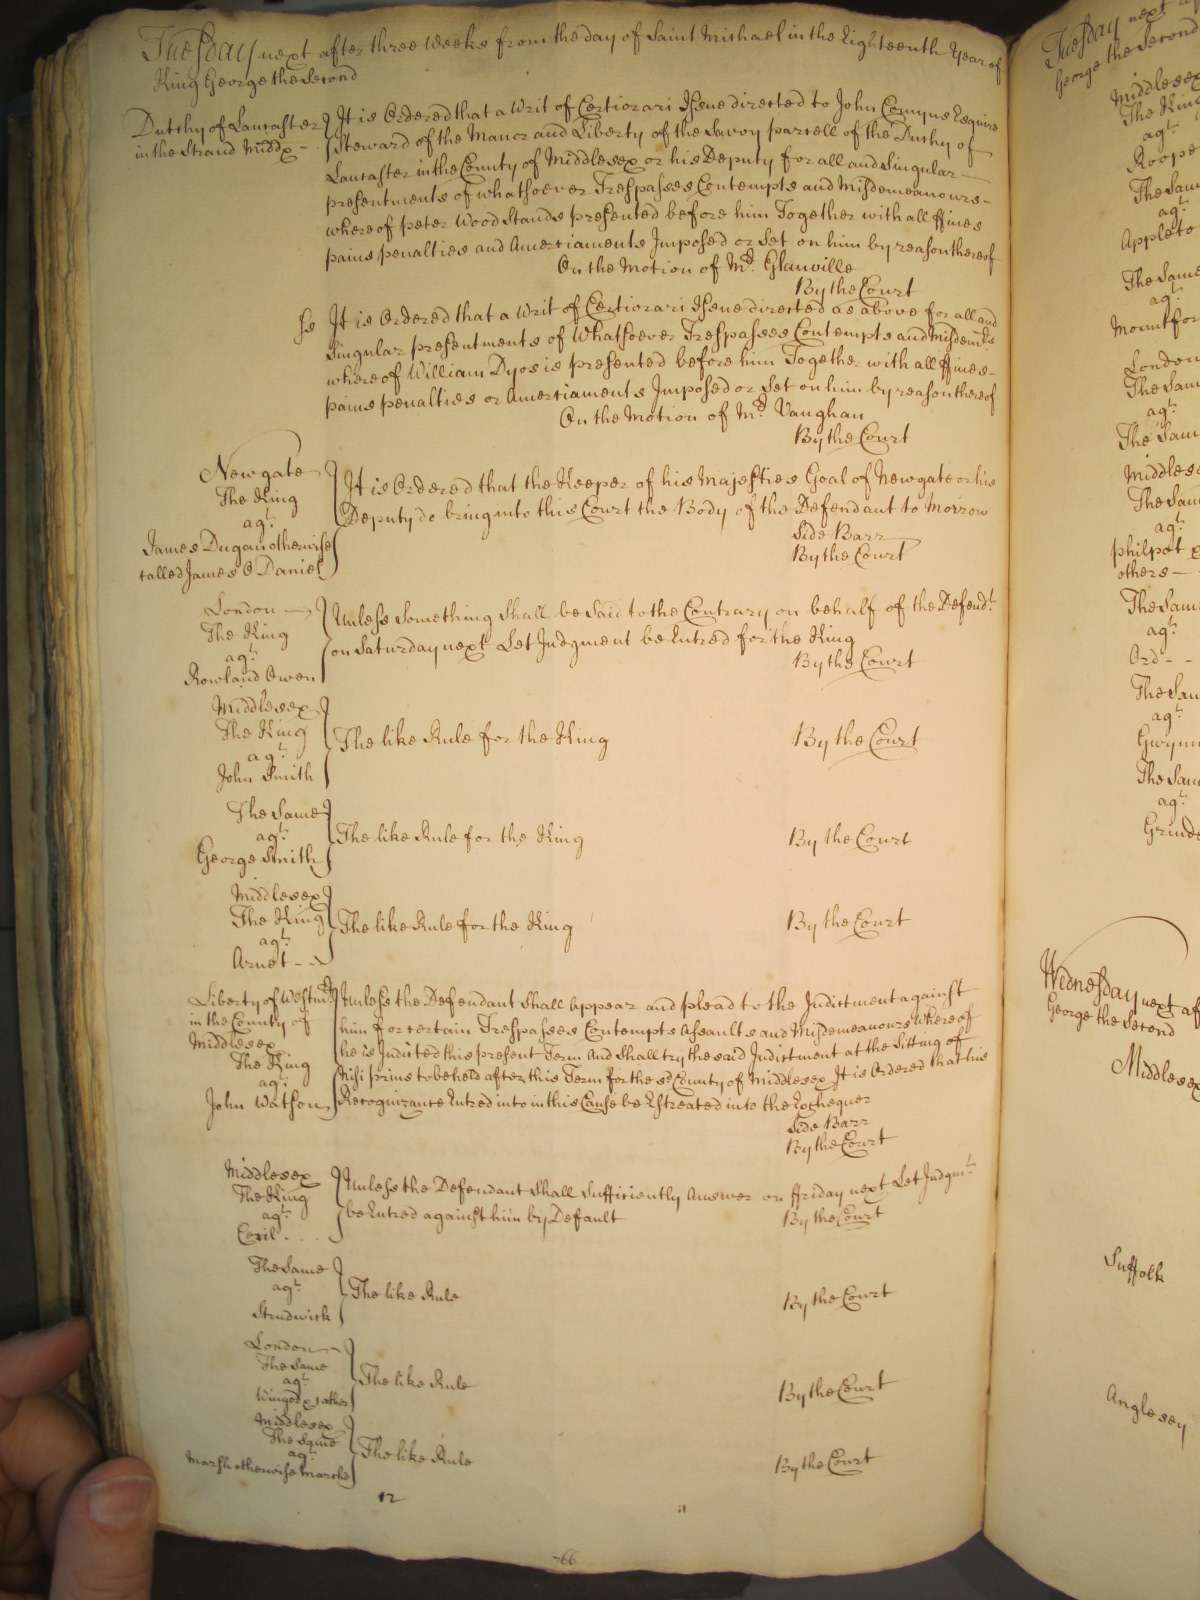 Tuesday next after three Weeks from the day of Saint Michael in the Eighteenth Year of
King George the Second
Dutchy of Lancaster
in the Strand Middx
It is Ordered that a Writ of Certiorari Issue directed to John Comyns Esquire
Steward of the Manor and Liberty of the Savoy parcell of the Dutchy of
Lancaster in the County of Middlesex or his Deputy for all and Singular
presentments of whatsoever Trespasses Contempts and Misdemeanours
whereof peter Wood Stands presented before him Together with all ffines
pains penalties and Amerciaments Imposed or Set on him by reason thereof
On the Motion of Mr. Glanville
By the Court
It is Ordered that a Writ of Certiorari Issue directed as above for all and
Singular presentments of Whatsoever Trespasses Contempts and Misdemrs
whereof William Dyos is presented before him Together with all ffines
pains penalties or Amerciaments Imposed or Set on him by reason thereof
On the Motion of Mr. Vaughan
By the Court
Newgate
The King
agt.
James Dugan otherwise
called James O Daniel
It is Ordered that the Keeper of his Majesties Goal of Newgate or his
Deputy do bring into this Court the Body of the Defendant to Morrow
Side Barr
By the Court
London
The King
agt.
Rowland Owen
Unless Something Shall be Said to the Contrary on behalf of the Defendt.
on Saturday next Let Judgment be Entred for the King
By the Court
Middlesex
The King
agt.
John Smith
The like Rule for the King
By the Court
The Same
agt.
George Smith
The like Rule for the King
By the Court
Middlesex
The King
agt.
Arnet
The like Rule for the King
By the Court
Liberty of Westmr
in the County of
Middlesex
The King
agt.
John Watson
Unless the Defendant Shall Appear and plead to the Indictment against
him for certain Trespasses Contempts Assaults and Misdemeanours Whereof
he is Indicted this present Term And Shall try the said Indictment at the Sitting of
Nisi prius to be held after this Term for the sd County of Middlesex It is Ordered that his
Recognizance Entred into in this Cause be Estreated into the Exchequer
Side Barr
By the Court
Middlesex
The King
agt.
Cecil
Unless the Defendant Shall Sufficiently Answer on ffriday next Let Judgmt.
be Entred against him by Default
By the Court
The Same
agt.
Studwick
The like Rule
By the Court
London
The Same
agt.
The like Rule
By the Court
Middlesex
The Same
agt.
Marsh otherwise Marche
The like Rule
By the Court
12
66
Tuesday next
George the Second
Middlesex
The King
agt.
Roope
The Same
agt.
The Same
agt.
London
The Same
agt.
The Same
Middlesex
The Same
agt.
philpot
others
The Same
agt.
Ord
The Same
agt.
The Same
agt.
Wednesday next
George the Second
Middlesex
Suffolk
Anglesey